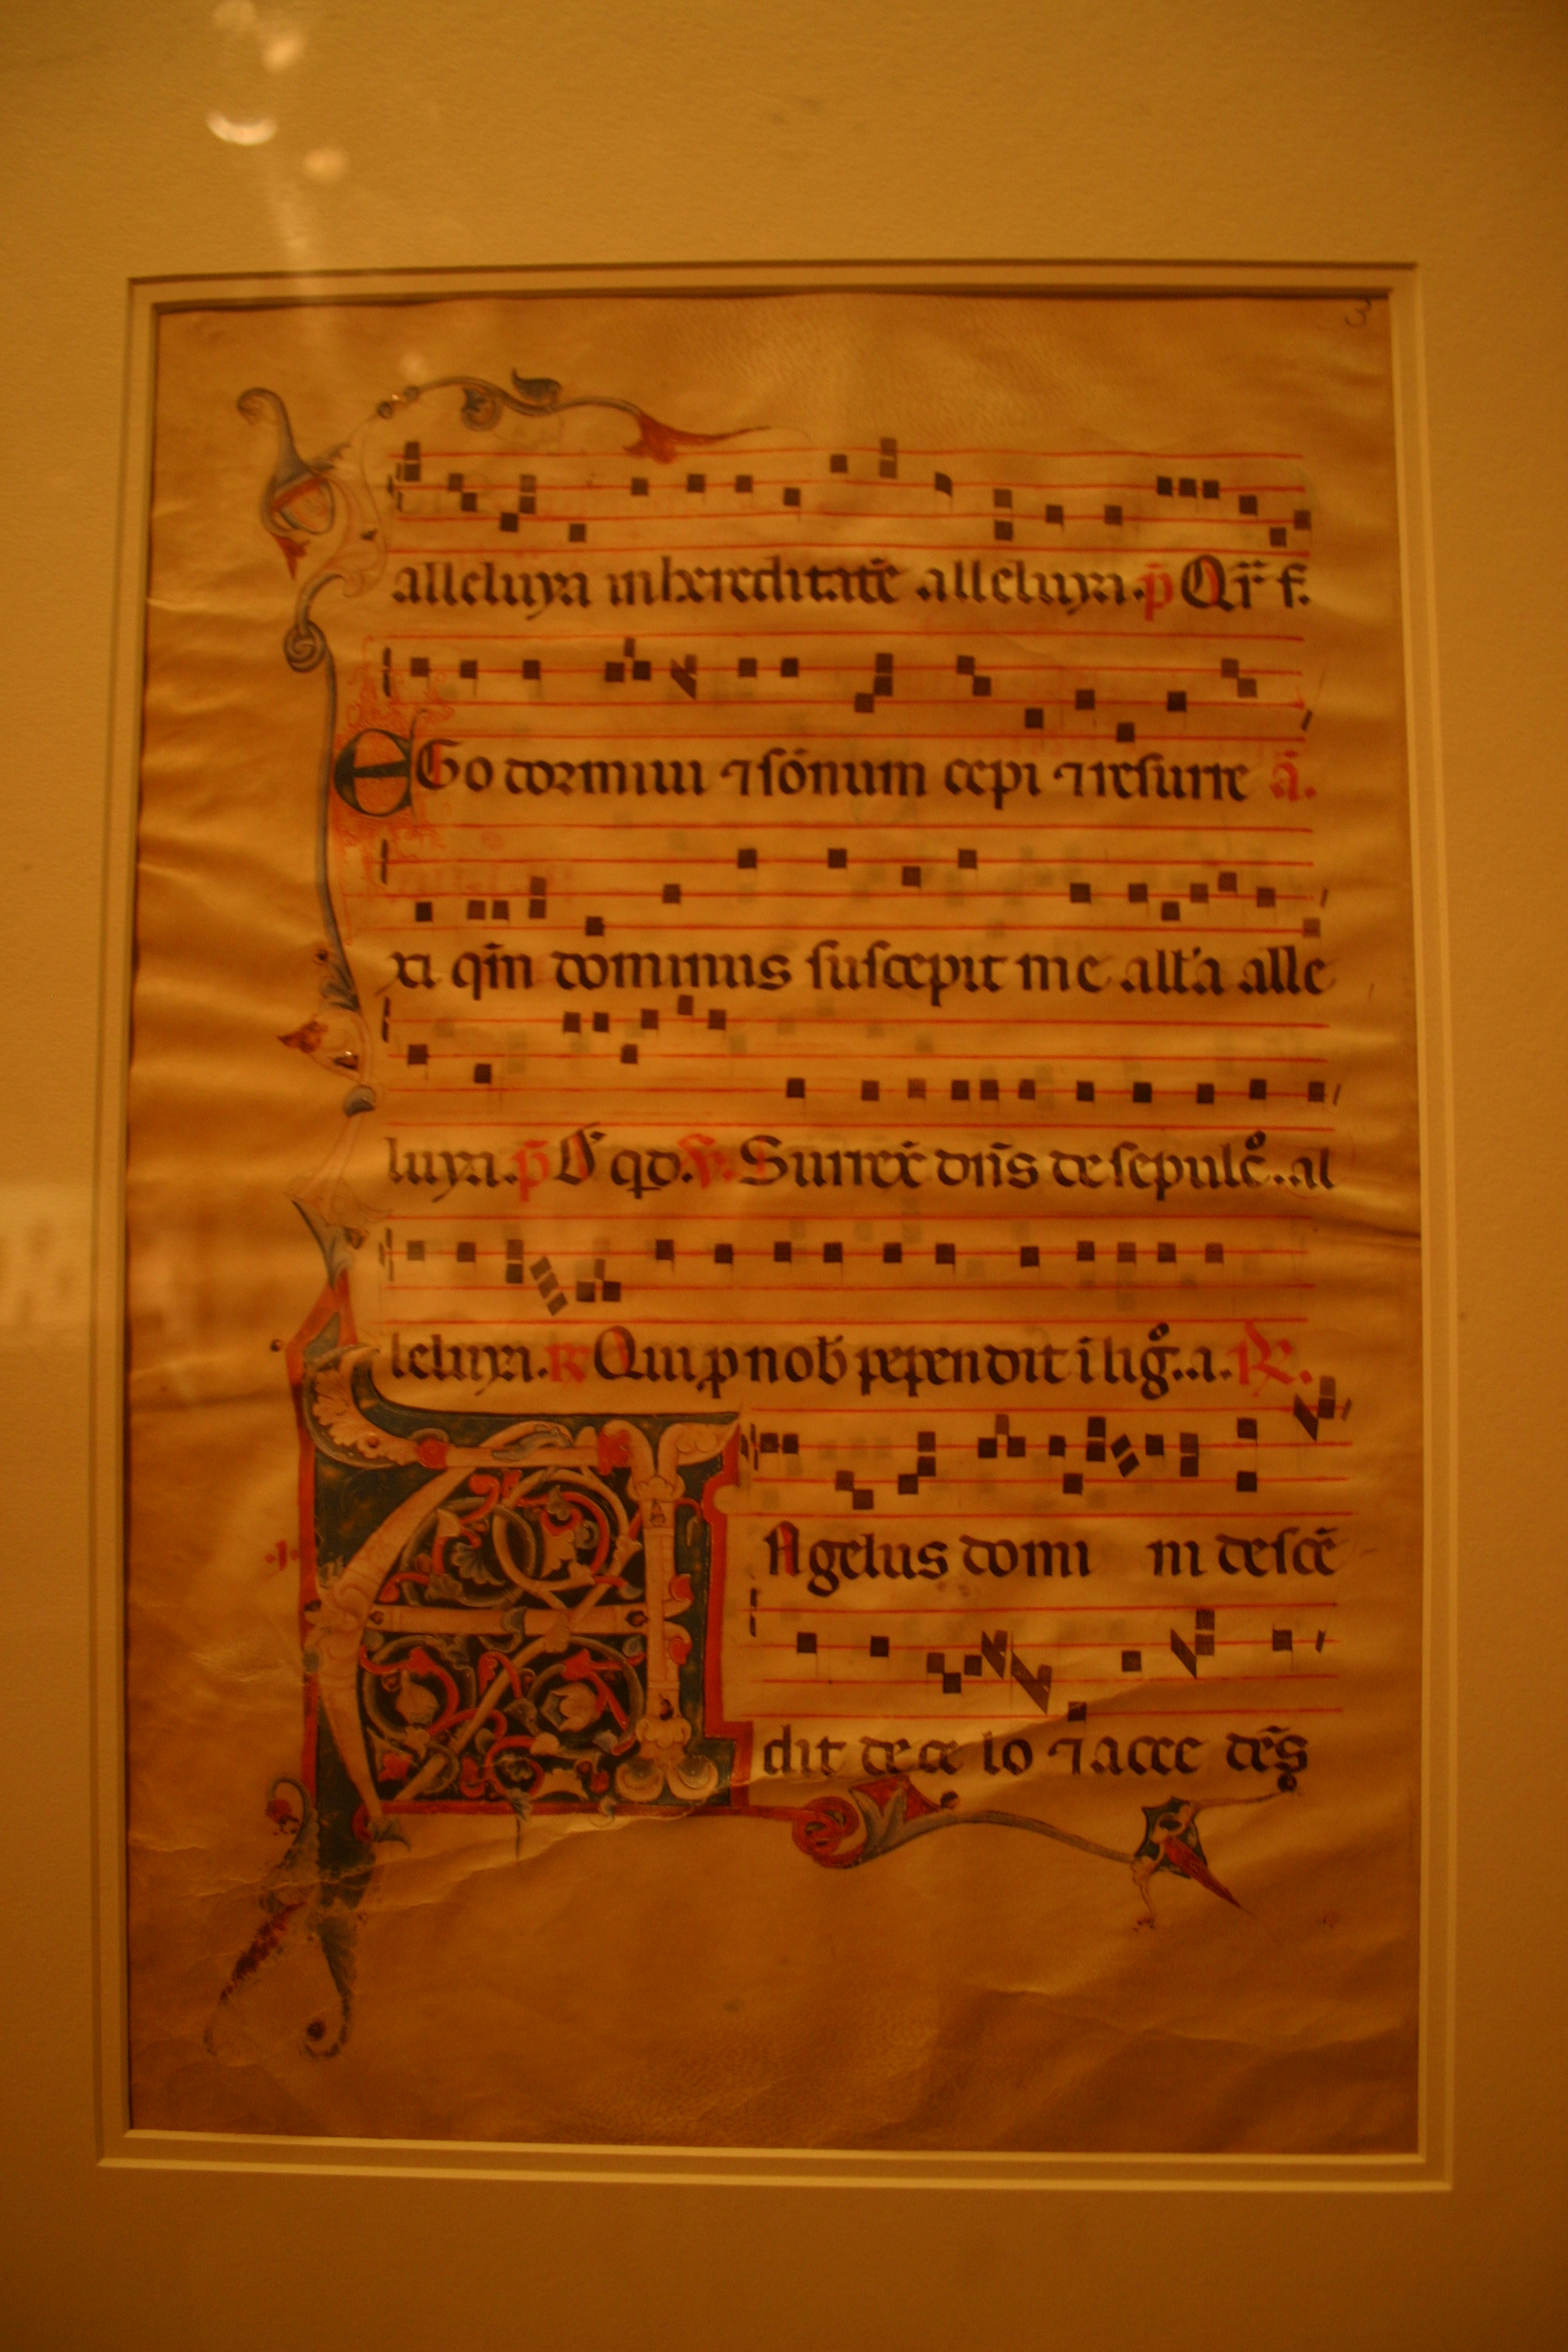 3
alleluya in hereditatē alleluya. p̄ Qr̄ f.
EGo dormiui ⁊ sōnum cepi ⁊ resurre ā.
xi qm̄ dominus suscepit me all'a alle
luya. p̄ qd. Surrex̄ dn̄s de sepulc̄o. al
leluya. Qui ꝓ nob̄ pependit ī lig̊. a. ℟.
Agelus domi ni descē
dit de ce lo ⁊ acce dēs